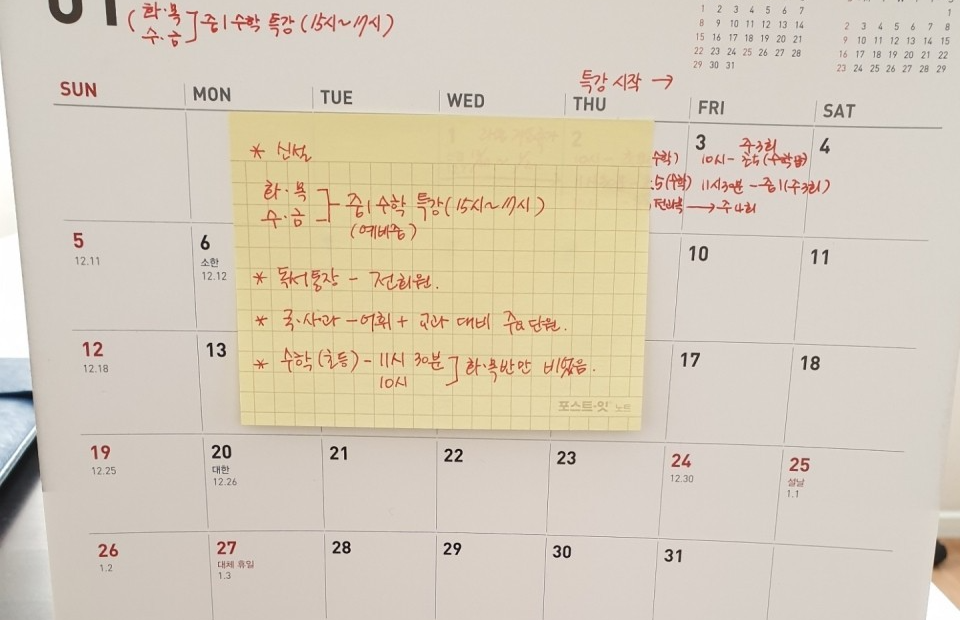 01
화·목
수·금 ] 중1 수학 특강 (15시~17시)
1 2 3 4 5 6 7
8 9 10 11 12 13 14
15 16 17 18 19 20 21
22 23 24 25 26 27 28
29 30 31
1
2 3 4 5 6 7 8
9 10 11 12 13 14 15
16 17 18 19 20 21 22
23 24 25 26 27 28 29
특강 시작 →
SUN MON TUE WED THU FRI SAT
1 2 3 4
주3회
수학) 10시-
5(수학) 11시30분 - 중1(주3회)
→ 주4회
* 신설
화·목
수·금 ] 중1 수학 특강 (15시~17시)
(예비중)
* 독서통장 - 전회원.
* 국·사·과 - 어휘 + 교과 대비 주요단원.
* 수학(초등) - 11시 30분
10시 ] 화·목반만 비었음.
포스트-잇 노트
5 6 10 11
12.11 소한
12.12
12 13 17 18
12.18
19 20 21 22 23 24 25
12.25 대한 12.30 설날
12.26 1.1
26 27 28 29 30 31
1.2 대체 휴일
1.3